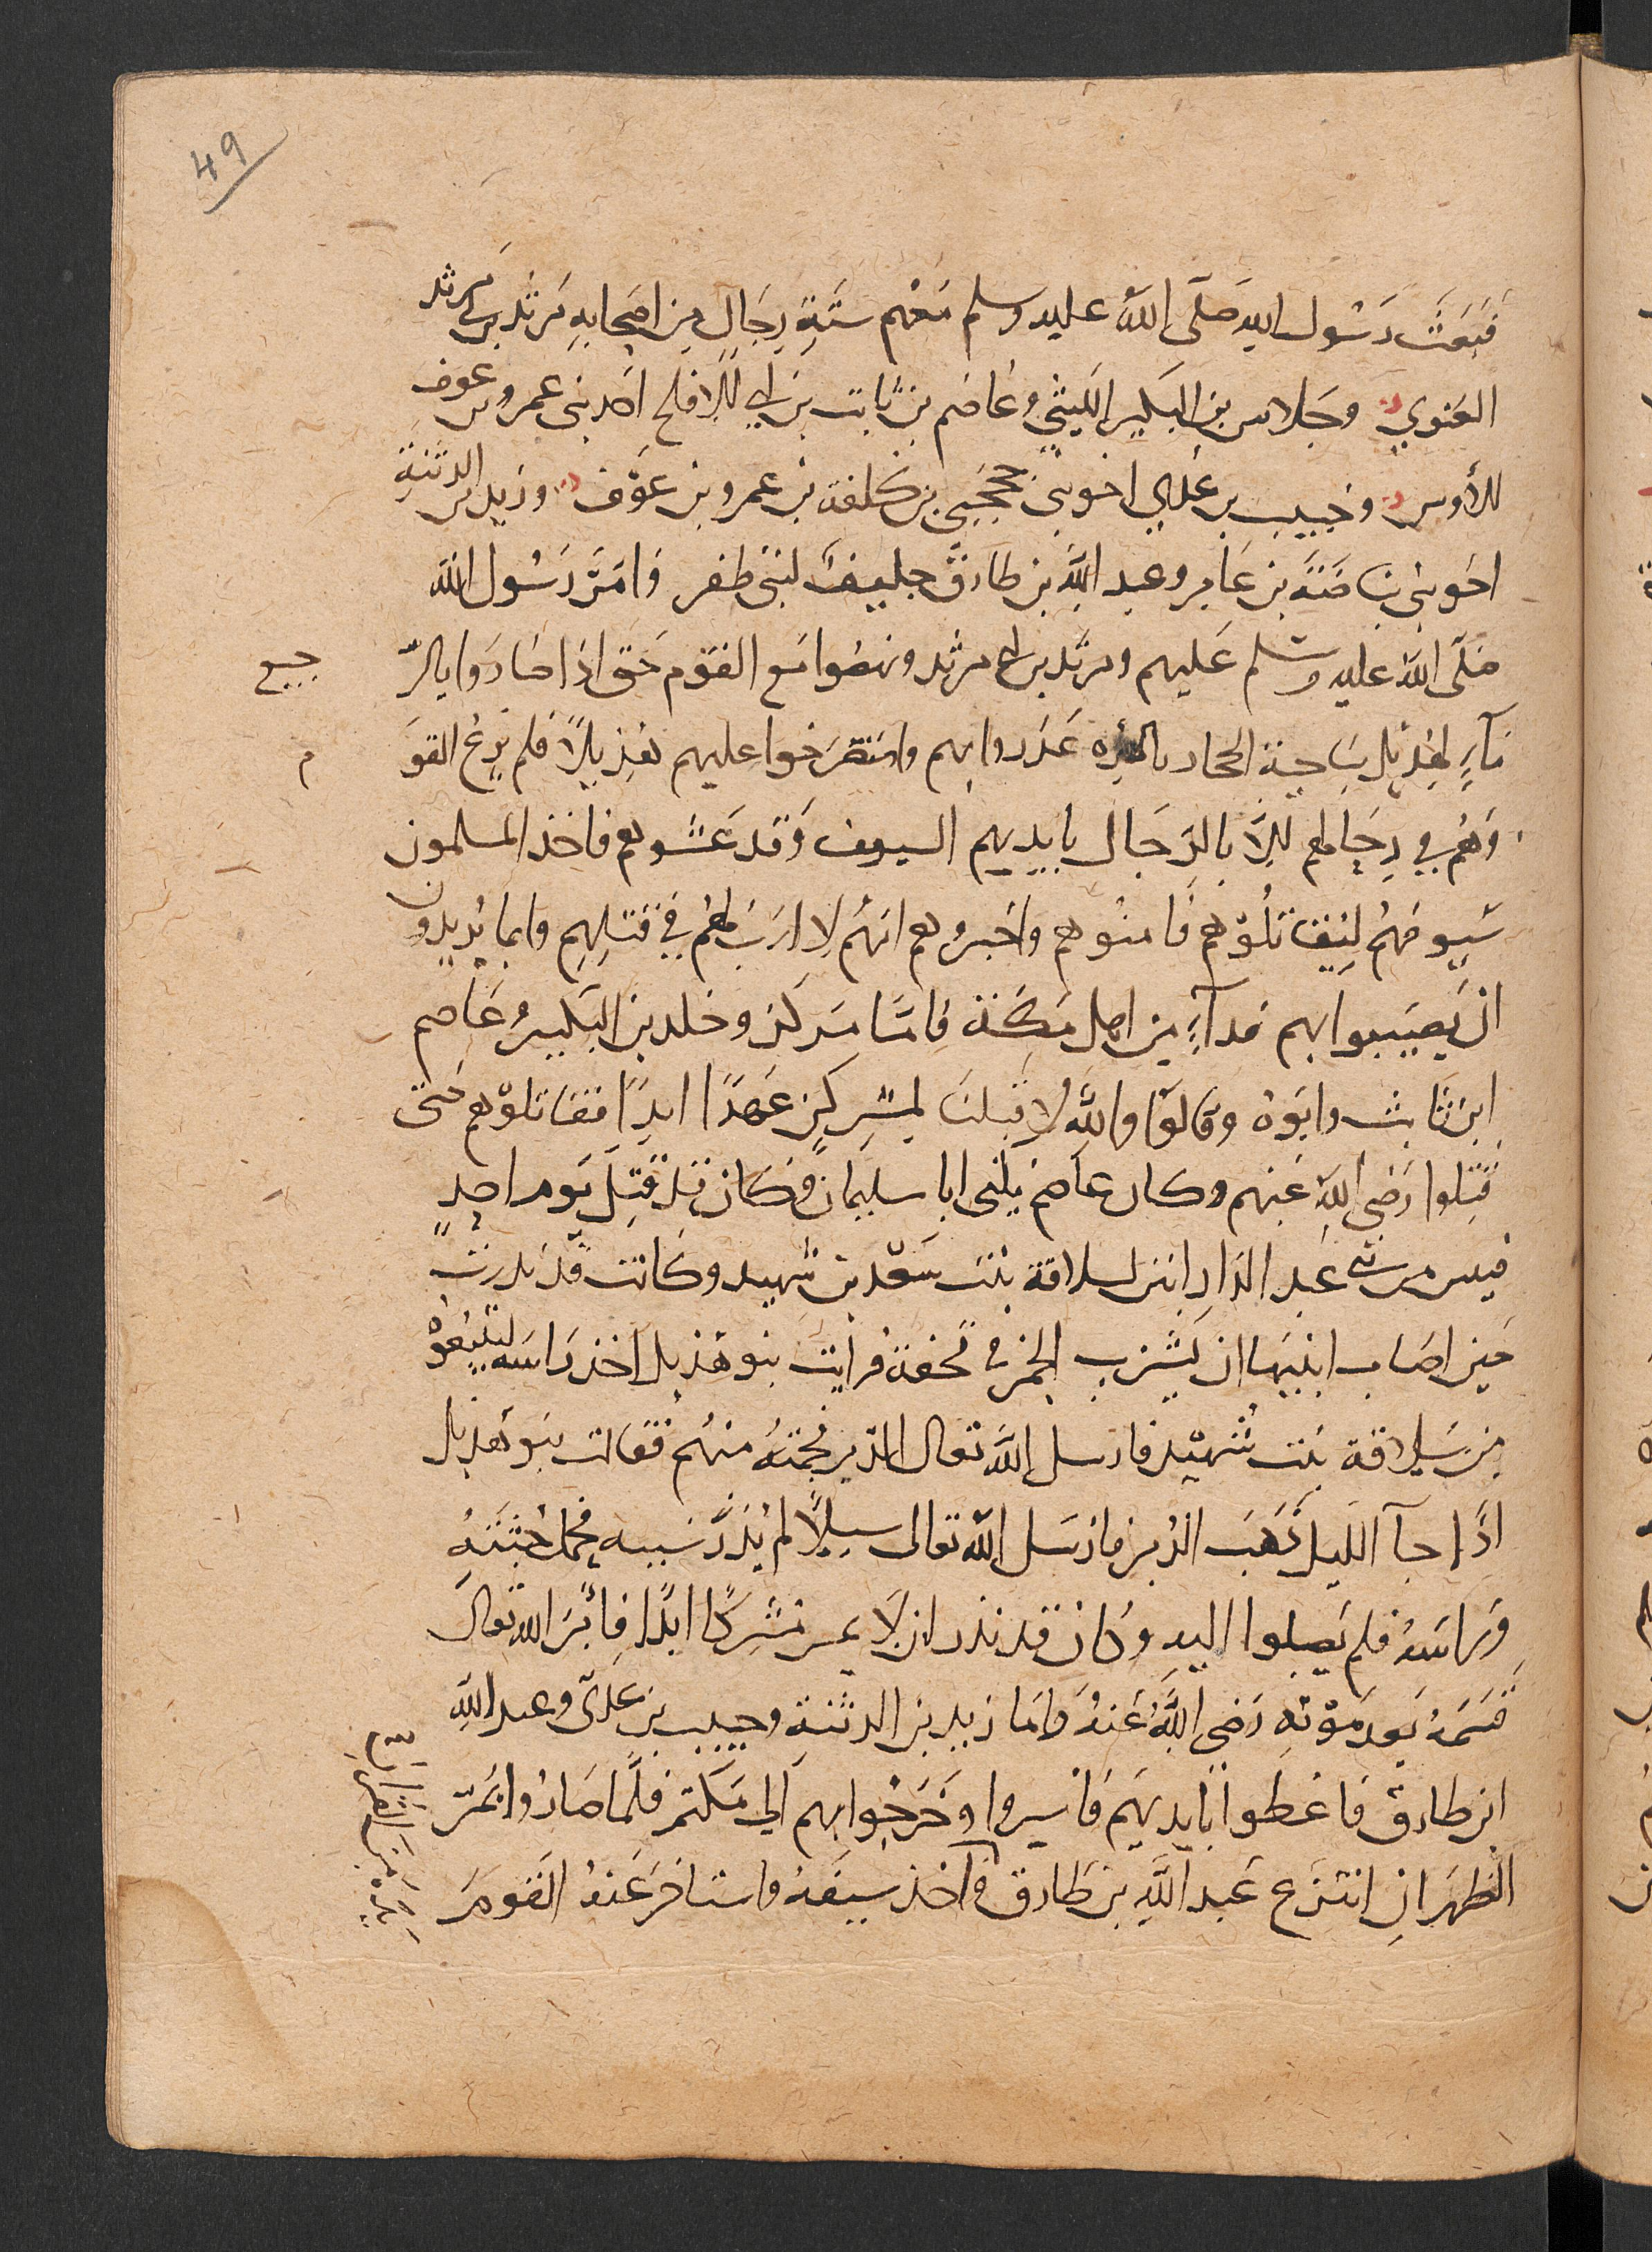 49
فبعث رسول الله صلى الله عليه وسلم معهم ستة رجال من اصحابه مرثد بن ابي مرثد
الغنوي وجلاس بن البكير الليثي وعاصم بن ثابت بن ابي الافلح احد بني عمرو بن عوف
الأوس وخبيب بن عدي اخو بني حججبي بن كلفة بن عمرو بن عوف وزيد بن الدثنة
اخو بني بياضة بن عامر وعبد الله بن طارق حليف لبني ظفر وامر رسول الله
صلى الله عليه وسلم عليهم ومرثد بن ابي مرثد ونهضوا مع القوم حتى اذا صاروا بالر
جيع
مآء لهذيل بناحية الحجاز غدروا بهم واستصرخوا عليهم هذيلا فلم يرع القو
م
وهم في رحالهم الا بالرجال بايديهم السيوف وقد غشوهم فاخذ المسلمون
سيوفهم ليقاتلوهم فامنوهم واخبروهم انهم لا ارب لهم في قتلهم وانما يريدون
ان يصيبوا بهم فدآء من اهل مكة فاما مرثد وخلد بن البكير وعاصم
ابن ثابت وابوه وقالوا والله لا قبلنا لمشركين عهدا ابدا فقاتلوهم حتى
قتلوا رضي الله عنهم وكان عاصم يكنى ابا سليمان وكان قد قتل يوم احد
فيس من بني عبد الدار ابنين لسلافة بنت سعد بن شهيد وكانت قد نذرت
حين اصاب ابنيها ان تشرب الخمر في قحفة فرايت بنو هذيل اخذ راسه ليبيعوه
من سلافة بنت شهيد فارسل الله تعالى الدبر فحمته منهم فقالت بنو هذيل
اذا جآ الليل ذهب الدبر فارسل الله تعالى سيلا لم يدر سببه فحمل جثته
وراسه فلم يصلوا اليه وكان قد نذر ان لا يمس مشركا ابدا فابر الله تعالى
قسمه بعد موته رضي الله عنه واما زيد بن الدثنة وحبيب بن عدي وعبد الله
ابن طارق فاعطوا بايديهم فاسروا وخرجوا بهم الى مكة فلما صاروا بمر
الظهران انتزع عبد الله بن طارق واخذ سيفه واستاخر عنه القوم